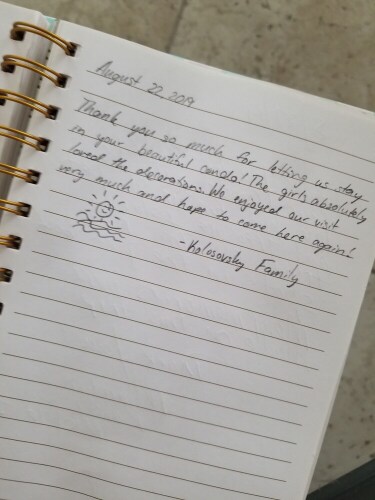 August 22, 2019
Thank you so much for letting us stay
in your beautiful condo! The girls absolutely
loved the decorations. We enjoyed our visit
very much and hope to come here again!
-Kolosovsky Family